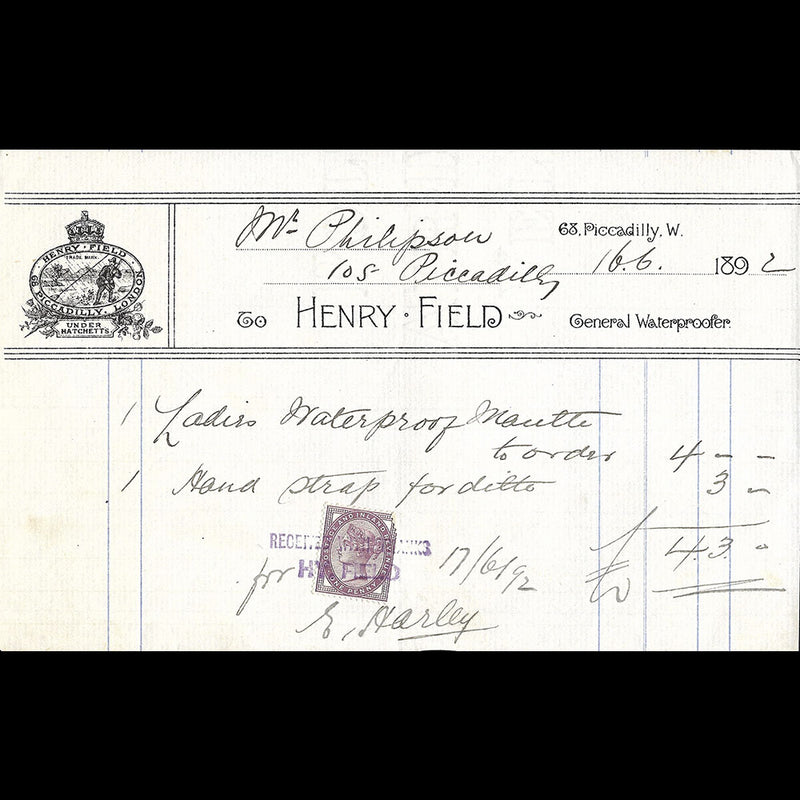 HENRY · FIELD
TRADE MARK
68 PICCADILLY. LONDON
UNDER
HATCHETTS
Mr Philipson
68, Piccadilly, W.
105 Piccadilly
16.6. 1892
To HENRY · FIELD General Waterproofer.
1 Ladies Waterproof Mantle
to order 4 - -
1 Hand strap for ditto 3 -
£ 4.3. -
POSTAGE AND INLAND REVENUE
ONE PENNY
RECEIVED WITH THANKS
for HY FIELD 17/6/92
E. Harley